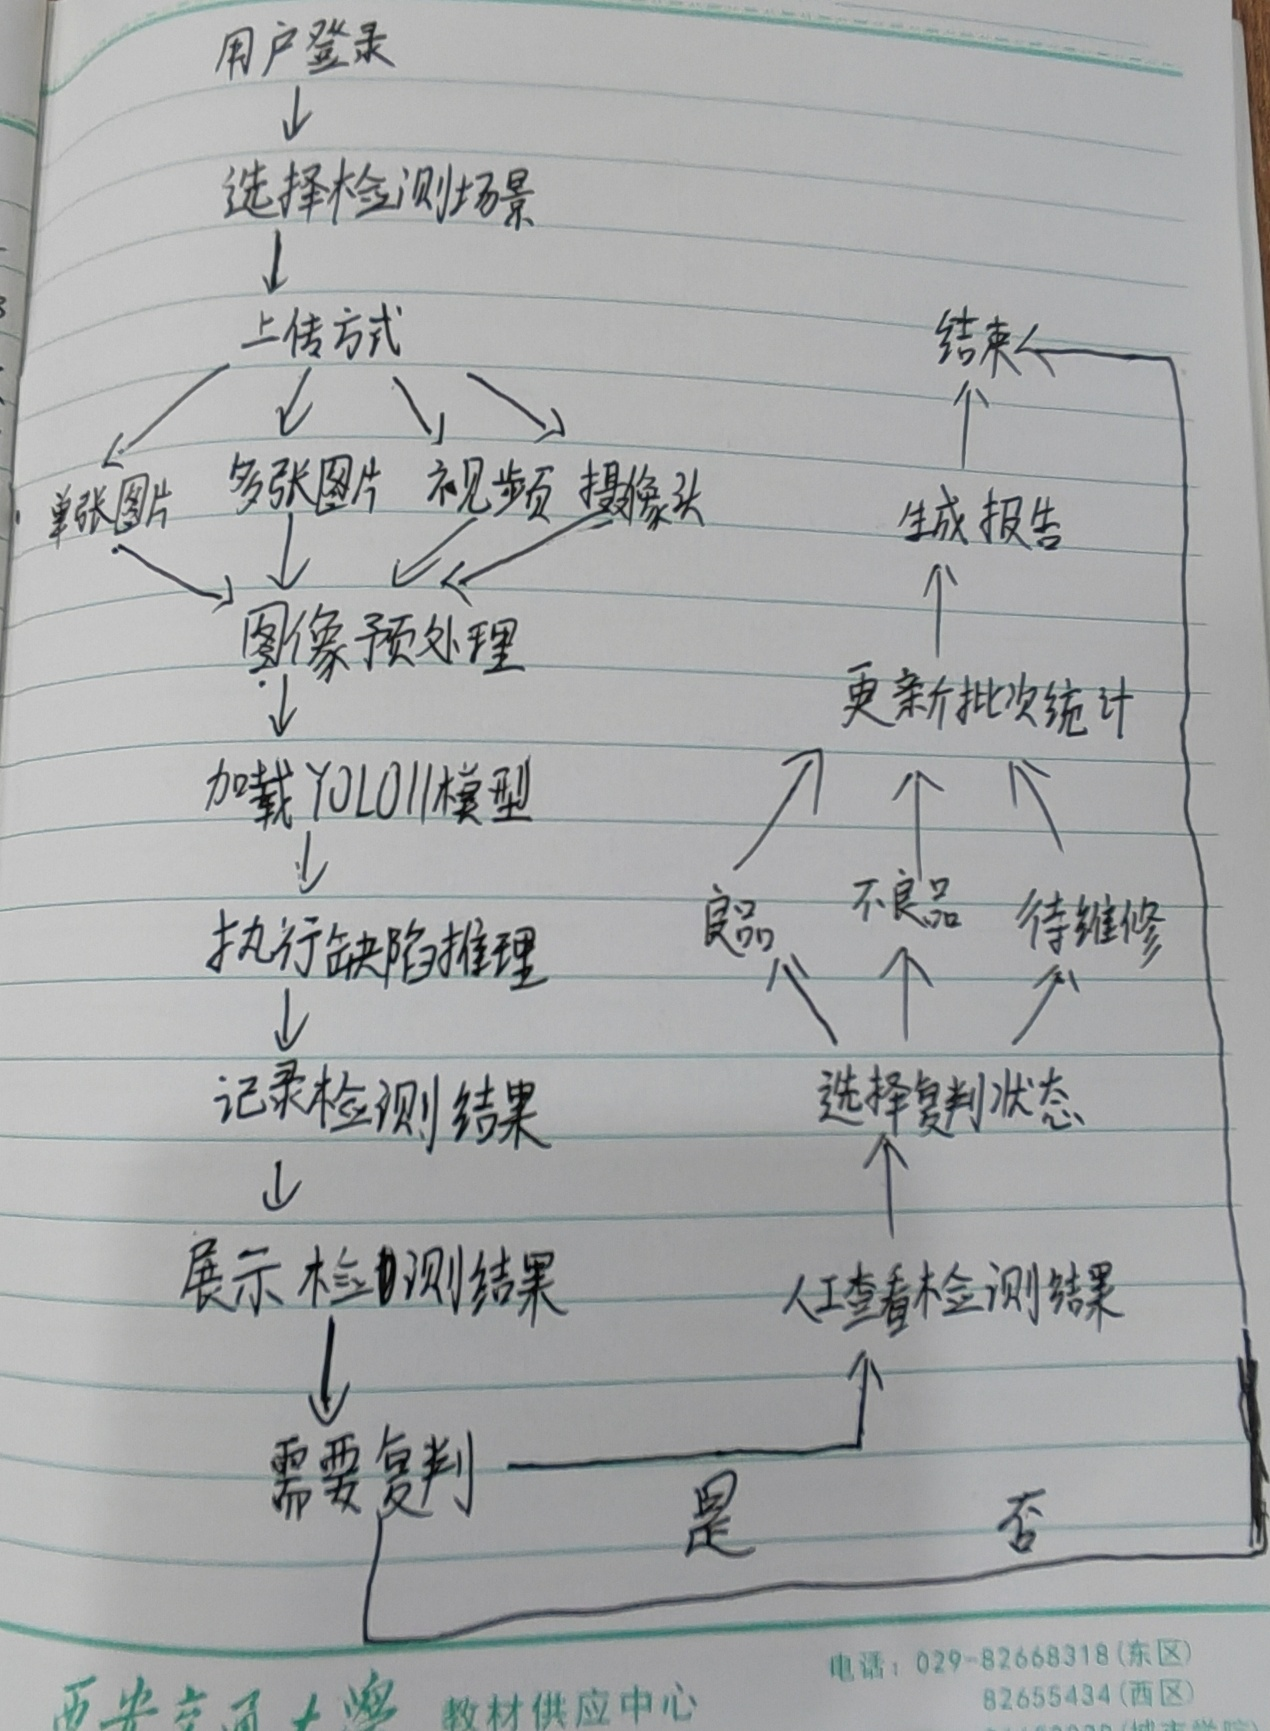 用户登录
选择检测场景
上传方式
单张图片 多张图片 视频 摄像头
图像预处理
加载YOLO11模型
执行缺陷推理
记录检测结果
展示检测结果
需要复判
是
否
人工查看检测结果
选择复判状态
良品 不良品 待维修
更新批次统计
生成报告
结束
西安交通大学 教材供应中心
电话：029-82668318(东区)
82655434(西区)